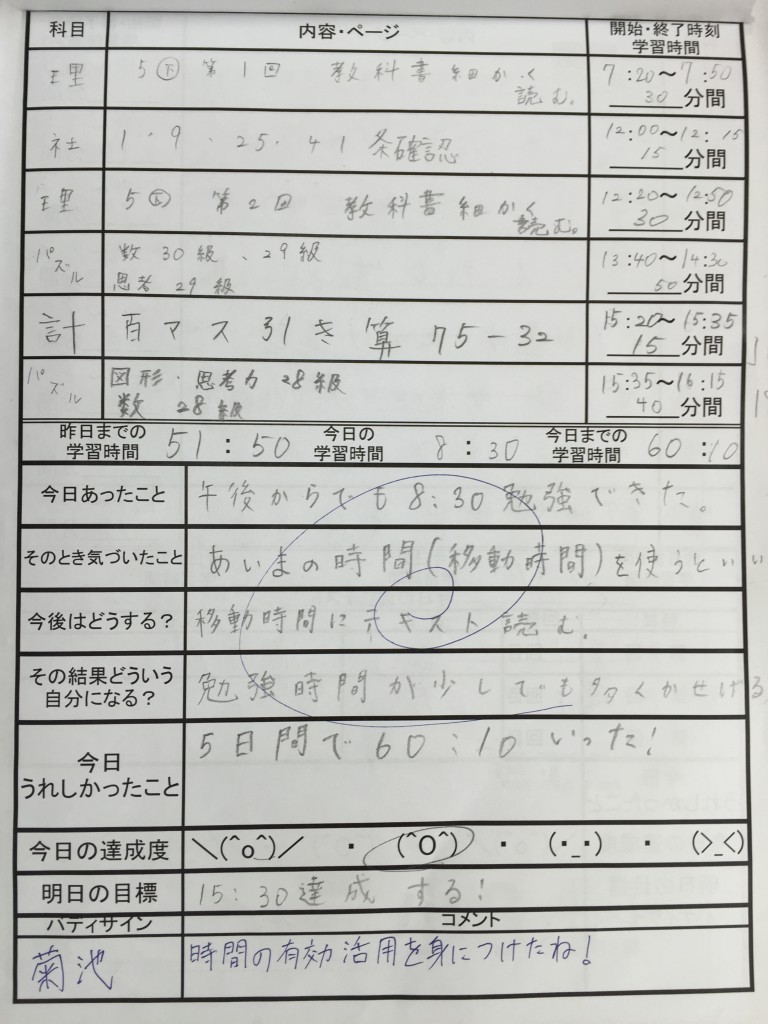 科目 内容・ページ 開始・終了時刻
学習時間
理 5㊦ 第1回 教科書細かく 7:20〜7:50
読む。 30分間
社 1・9・25・41条確認 12:00〜12:15
15分間
理 5㊦ 第2回 教科書細かく 12:20〜12:50
読む。 30分間
パズル 数 30級、29級 13:40〜14:30
思考 29級 50分間
計 百マス引き算 75-32 15:20〜15:35
15分間
パズル 図形・思考力 28級 15:35〜16:15
数 28級 40分間
昨日までの学習時間 51:50 今日の学習時間 8:30 今日までの学習時間 60:10
今日あったこと 午後からでも8:30勉強できた。
そのとき気づいたこと あいまの時間(移動時間)を使うといい
今後はどうする? 移動時間にテキスト読む。
その結果どういう自分になる? 勉強時間が少しでも多くかせげる
今日うれしかったこと 5日間で60:10いった!
今日の達成度 \(^o^)/ ・ (^O^) ・ (・_・) ・ (>_<)
明日の目標 15:30達成する!
バディサイン コメント
菊池 時間の有効活用を身につけたね!